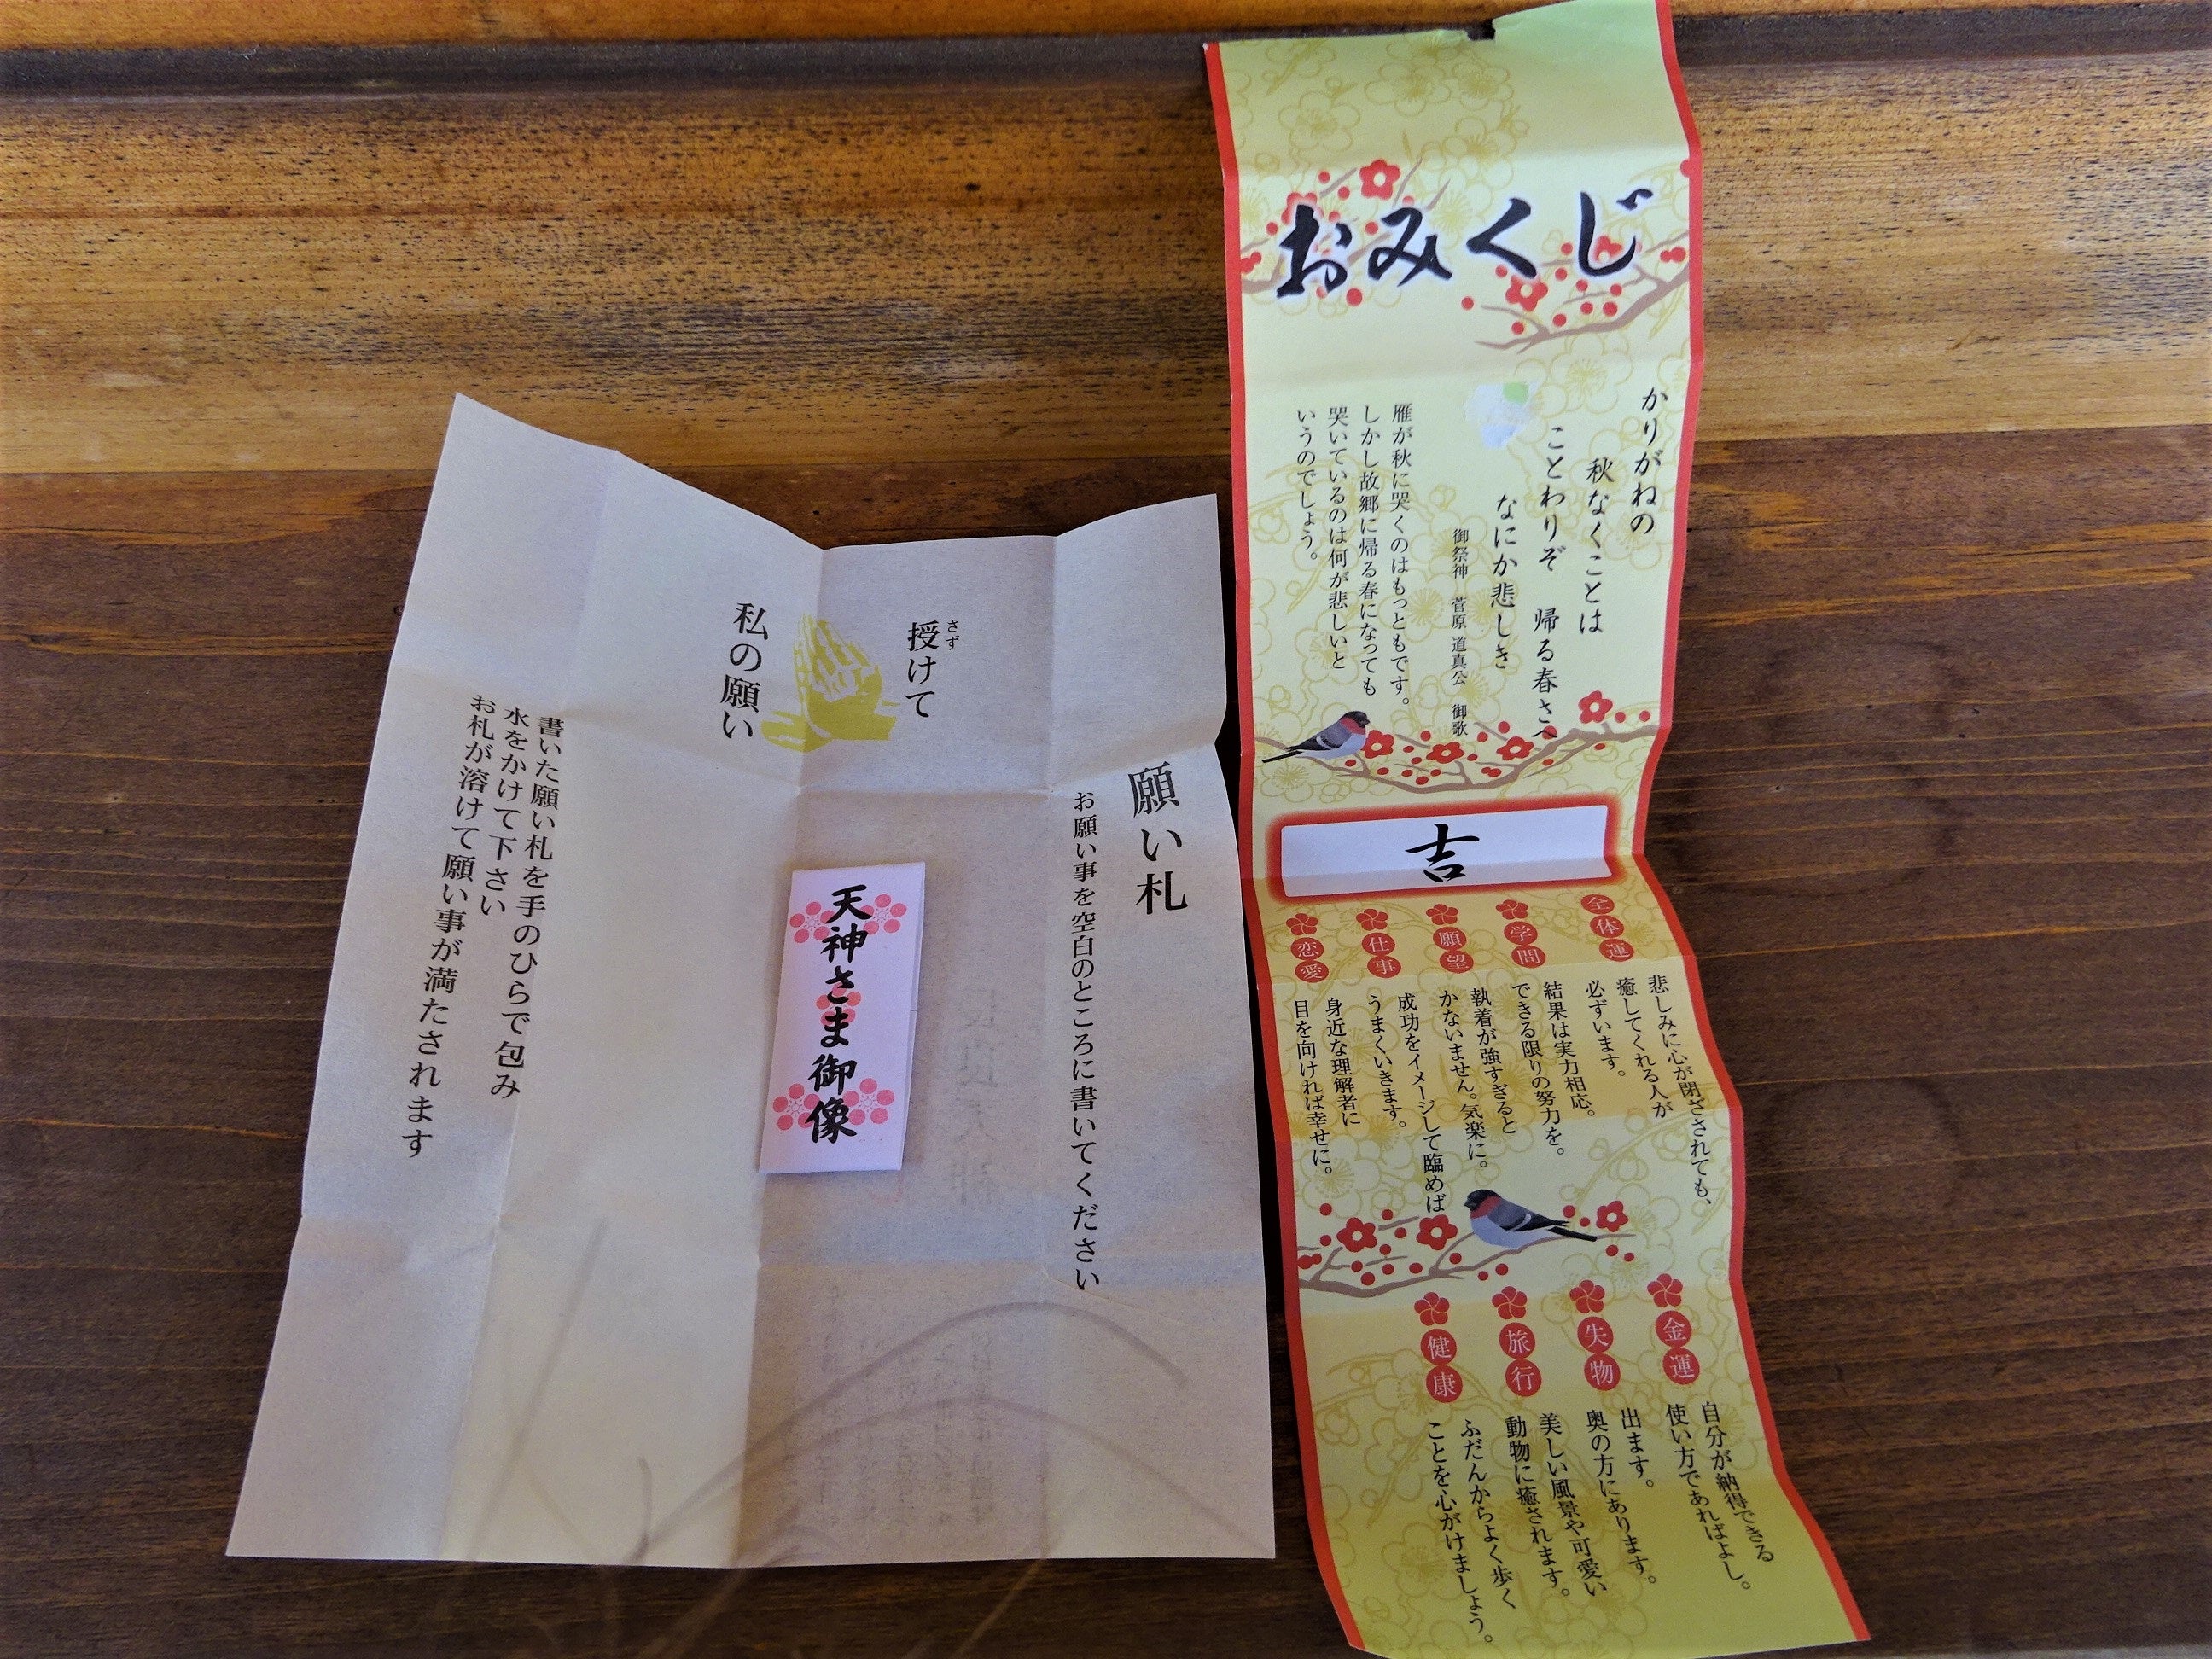 願い札
お願い事を空白のところに書いてください
授けて
さず
私の願い
書いた願い札を手のひらで包み
水をかけて下さい
お札が溶けて願い事が満たされます
天神さま御像
おみくじ
かりがねの
秋なくことは
ことわりぞ 帰る春さへ
なにか悲しき
御祭神 菅原道真公 御歌
雁が秋に哭くのはもっともです。
しかし故郷に帰る春になっても
哭いているのは何が悲しいと
いうのでしょう。
吉
全体運
悲しみに心が閉ざされても、
癒してくれる人が
必ずいます。
学問
結果は実力相応。
できる限りの努力を。
願望
執着が強すぎると
かないません。気楽に。
仕事
成功をイメージして臨めば
うまくいきます。
恋愛
身近な理解者に
目を向ければ幸せに。
金運
自分が納得できる
使い方であればよし。
失物
出ます。
奥の方にあります。
旅行
美しい風景や可愛い
動物に癒されます。
健康
ふだんからよく歩く
ことを心がけましょう。